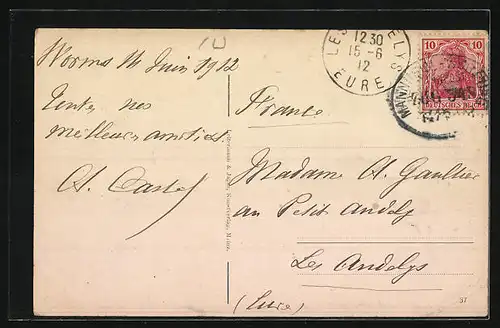 Worms 14 Juin 1912
Toutes nos
meilleures amitiés
A. Castel
France
Madame A. Gaultier
au Petit Andely
Les Andelys
(Eure)
LES ANDELYS
12 30
15 -6
12
EURE
10 10
DEUTSCHES REICH
37